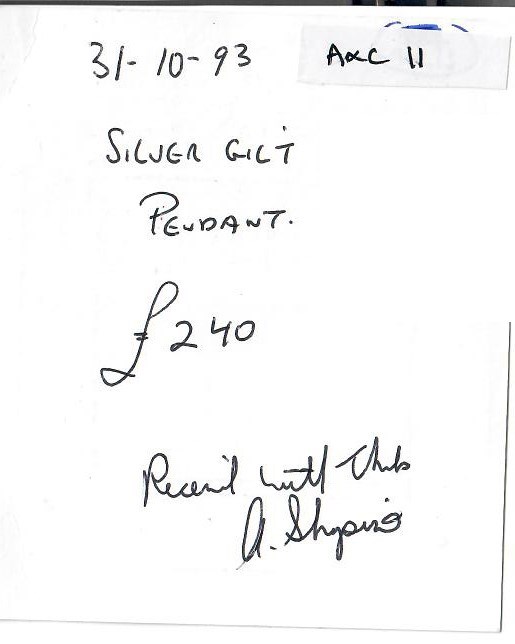 31-10-93
AxC 11
SILVER GILT
PENDANT.
£240
Received with Thks
A. Shapiro